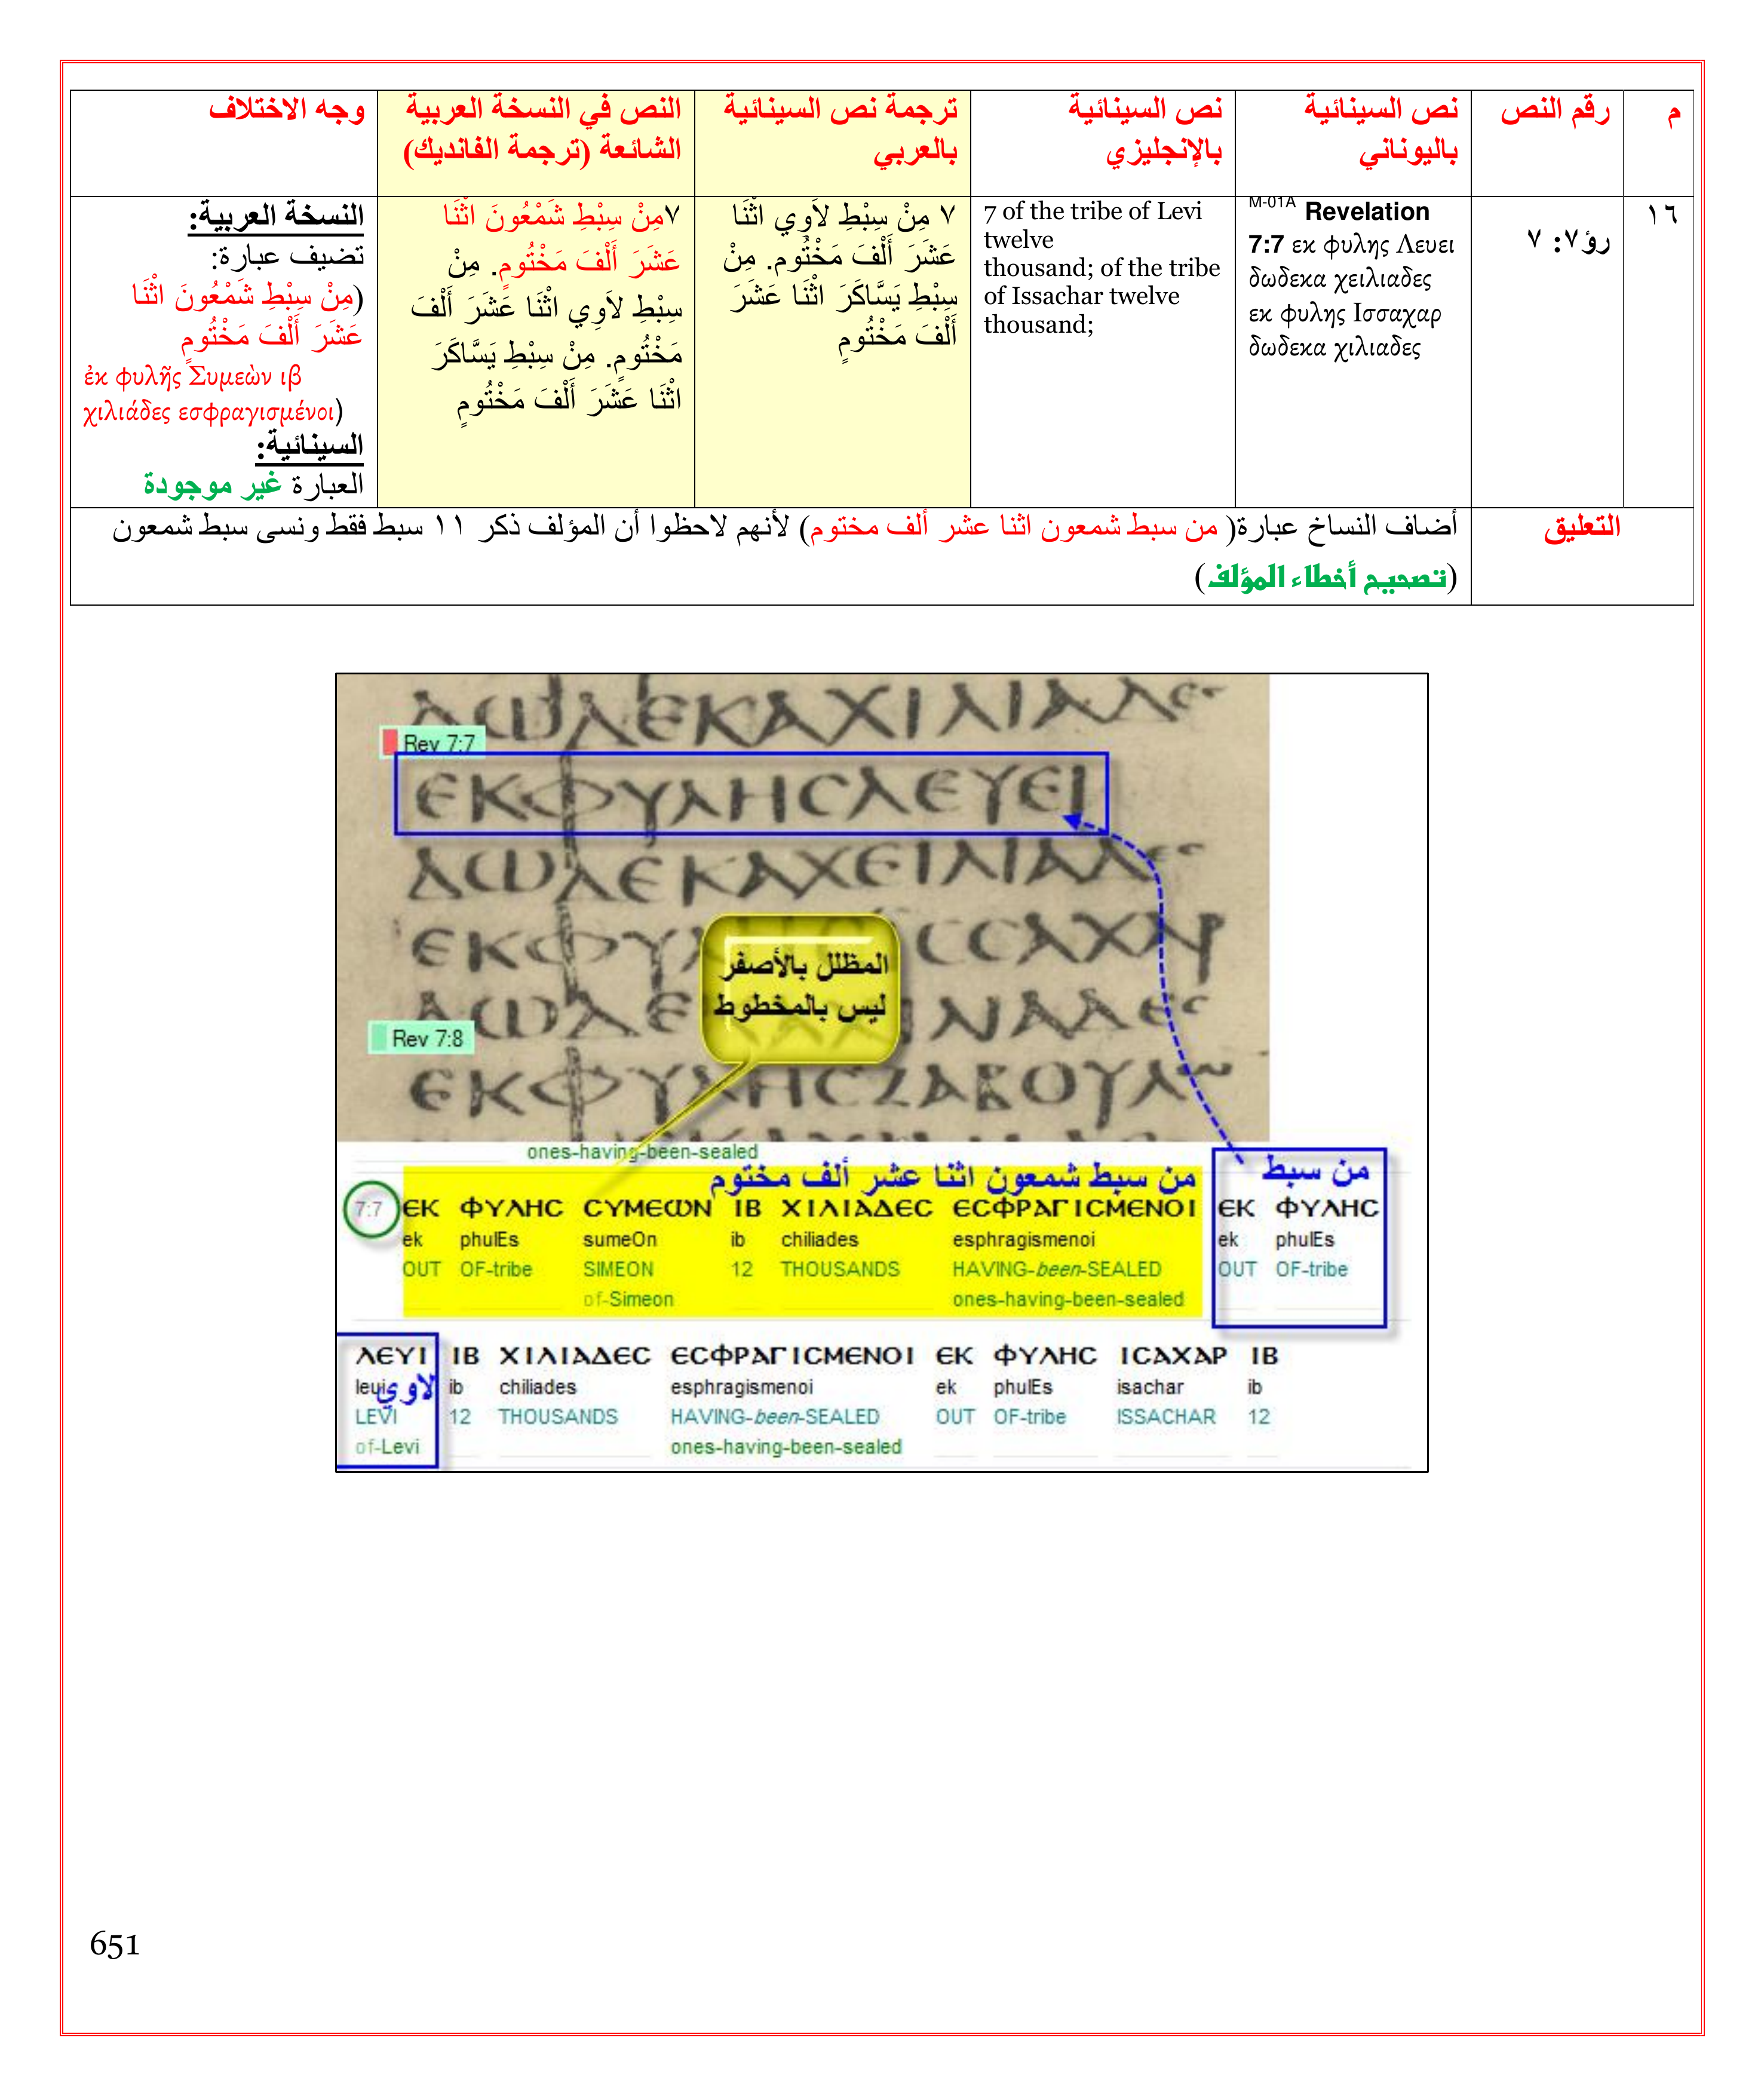 م
رقم النص
نص السينائية
باليوناني
نص السينائية
بالإنجليزي
ترجمة نص السينائية
بالعربي
النص في النسخة العربية
الشائعة (ترجمة الفانديك)
وجه الاختلاف
١٦
رؤ٧: ٧
M-01A Revelation
7:7 εκ φυλης Λευει
δωδεκα χειλιαδες
εκ φυλης Ισσαχαρ
δωδεκα χιλιαδες
7 of the tribe of Levi
twelve
thousand; of the tribe
of Issachar twelve
thousand;
٧ مِنْ سِبْطِ لاَوِي اثْنَا
عَشَرَ أَلْفَ مَخْتُوم. مِنْ
سِبْطِ يَسَّاكَرَ اثْنَا عَشَرَ
أَلْفَ مَخْتُومٍ
٧مِنْ سِبْطِ شَمْعُونَ اثْنَا
عَشَرَ أَلْفَ مَخْتُومٍ. مِنْ
سِبْطِ لاَوِي اثْنَا عَشَرَ أَلْفَ
مَخْتُومٍ. مِنْ سِبْطِ يَسَّاكَرَ
اثْنَا عَشَرَ أَلْفَ مَخْتُومٍ
النسخة العربية:
تضيف عبارة:
(مِنْ سِبْطِ شَمْعُونَ اثْنَا
عَشَرَ أَلْفَ مَخْتُومٍ
ἐκ φυλῆς Συμεὼν ιβ
χιλιάδες εσφραγισμένοι)
السينائية:
العبارة غير موجودة
التعليق
أضاف النساخ عبارة( من سبط شمعون اثنا عشر ألف مختوم) لأنهم لاحظوا أن المؤلف ذكر ١١ سبط فقط ونسى سبط شمعون
(تصحيح أخطاء المؤلف)
ΔΩΔΕΚΑΧΙΛΙΑΔΕϹ
Rev 7:7
ΕΚΦΥΛΗϹΛΕΥΕΙ
ΔΩΔΕΚΑΧΕΙΛΙΑΔΕϹ
ΕΚΦΥΛ ϹϹΑΧΑΡ
المظلل بالأصفر
ليس بالمخطوط
ΔΩΔΕ ΛΙΑΔΕϹ
Rev 7:8
ΕΚΦΥΛΗϹΖΑΒΟΥΛ
ones-having-been-sealed
من سبط شمعون اثنا عشر ألف مختوم
من سبط
7:7 ΕΚ ΦΥΛΗϹ ϹΥΜΕΩΝ ΙΒ ΧΙΛΙΑΔΕϹ ΕϹΦΡΑΓΙϹΜΕΝΟΙ ΕΚ ΦΥΛΗϹ
ek phulEs sumeOn ib chiliades esphragismenoi ek phulEs
OUT OF-tribe SIMEON 12 THOUSANDS HAVING-been-SEALED OUT OF-tribe
of-Simeon ones-having-been-sealed
ΛΕΥΙ ΙΒ ΧΙΛΙΑΔΕϹ ΕϹΦΡΑΓΙϹΜΕΝΟΙ ΕΚ ΦΥΛΗϹ ΙϹΑΧΑΡ ΙΒ
leui لاوي ib chiliades esphragismenoi ek phulEs isachar ib
LEVI 12 THOUSANDS HAVING-been-SEALED OUT OF-tribe ISSACHAR 12
of-Levi ones-having-been-sealed
651